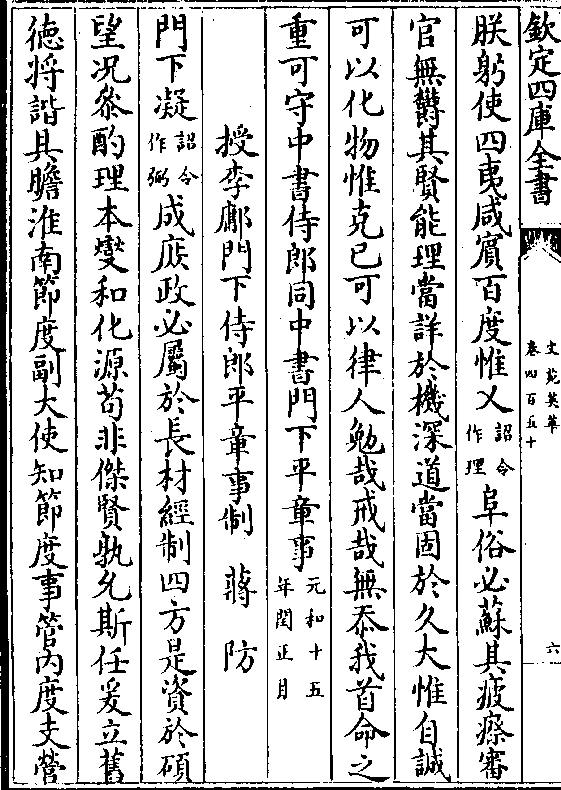 欽定四庫全書
文苑英華
卷四百五十
六
朕躬使四夷咸賓百度惟乂詔令作理阜俗必蘇其疲瘵審
官無鬱其賢能理當詳於機深道當固於久大惟自誠
可以化物惟克已可以律人勉哉戒哉無忝我首命之
重可守中書侍郎同中書門下平章事元和十五年閏正月
授李鄘門下侍郎平章事制 蔣防
門下凝詔令作弼成庶政必屬於長材經制四方是資於碩
望况叅酌理本燮和化源苟非傑賢孰允斯任爰立舊
徳將諧具瞻淮南節度副大使知節度事管内度支營